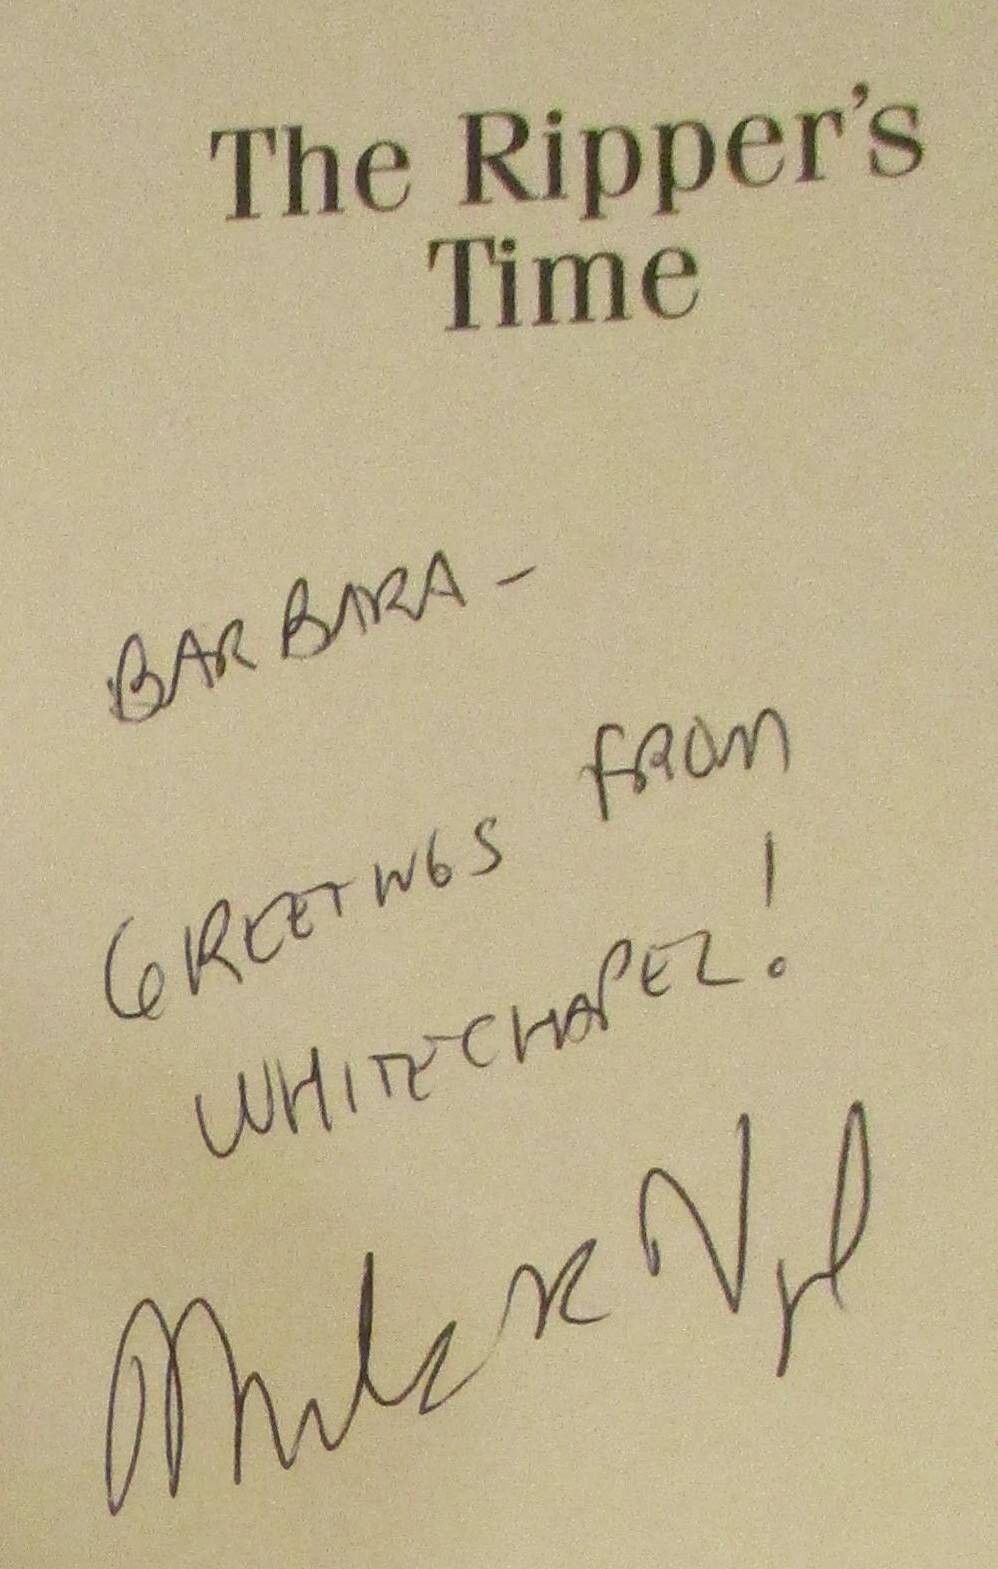 The Ripper's
Time
BARBARA –
GREETINGS FROM
WHITECHAPEL!